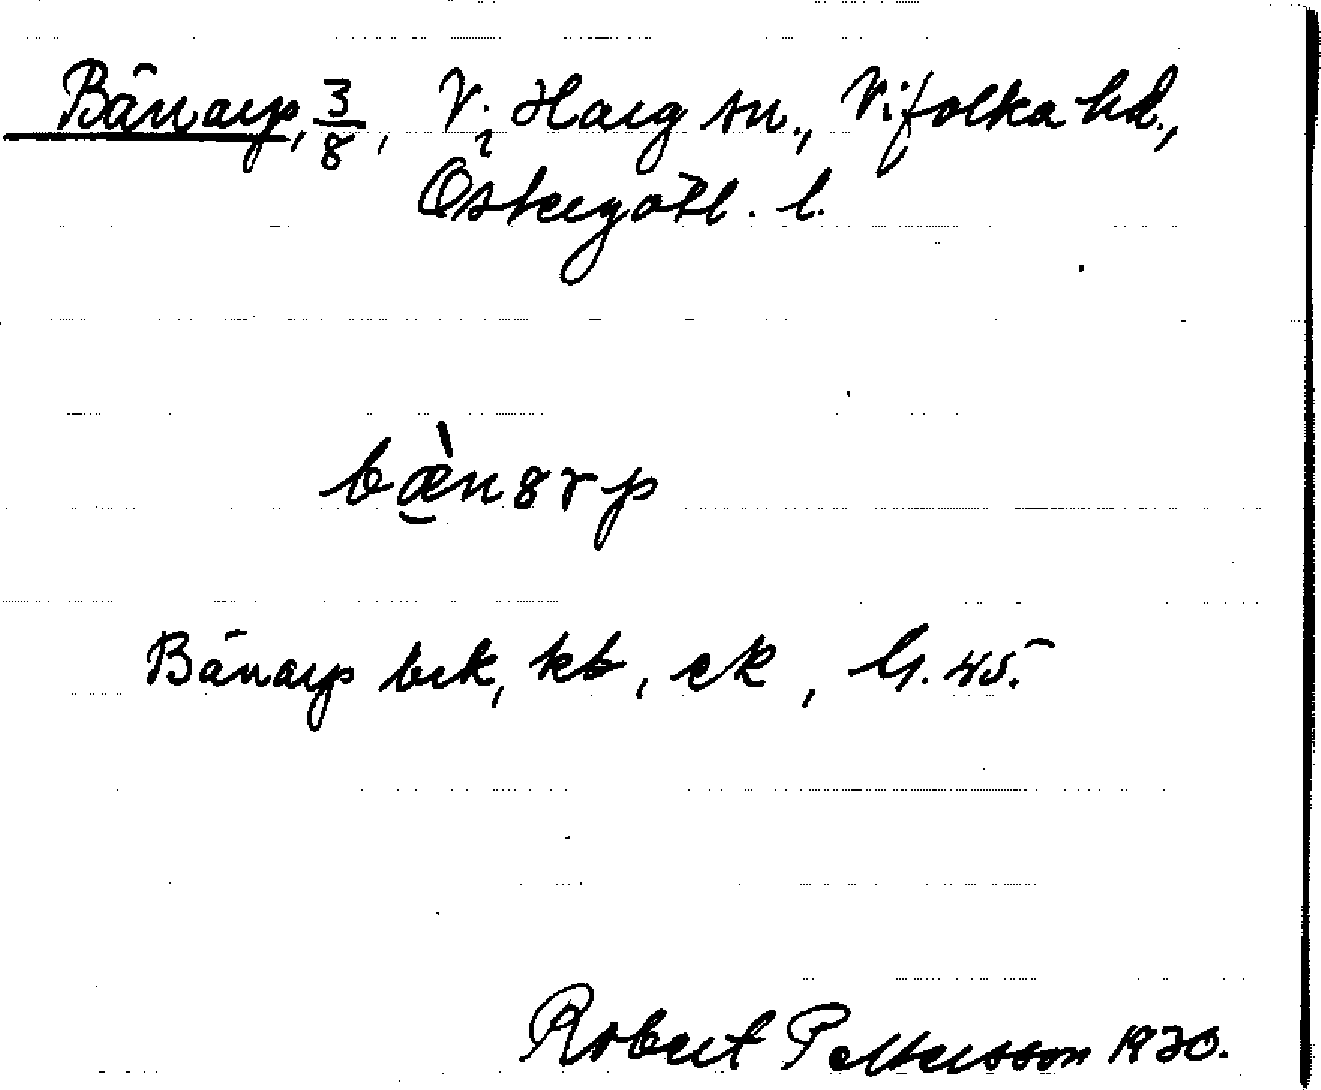 Bänarp, 3/8, V. Harg sn., Vifolka hd.,
Östergötl. l.
bæ̀n8rp
Bänarp brk, kb, ek, G. 45.
Robert Pettersson 1930.